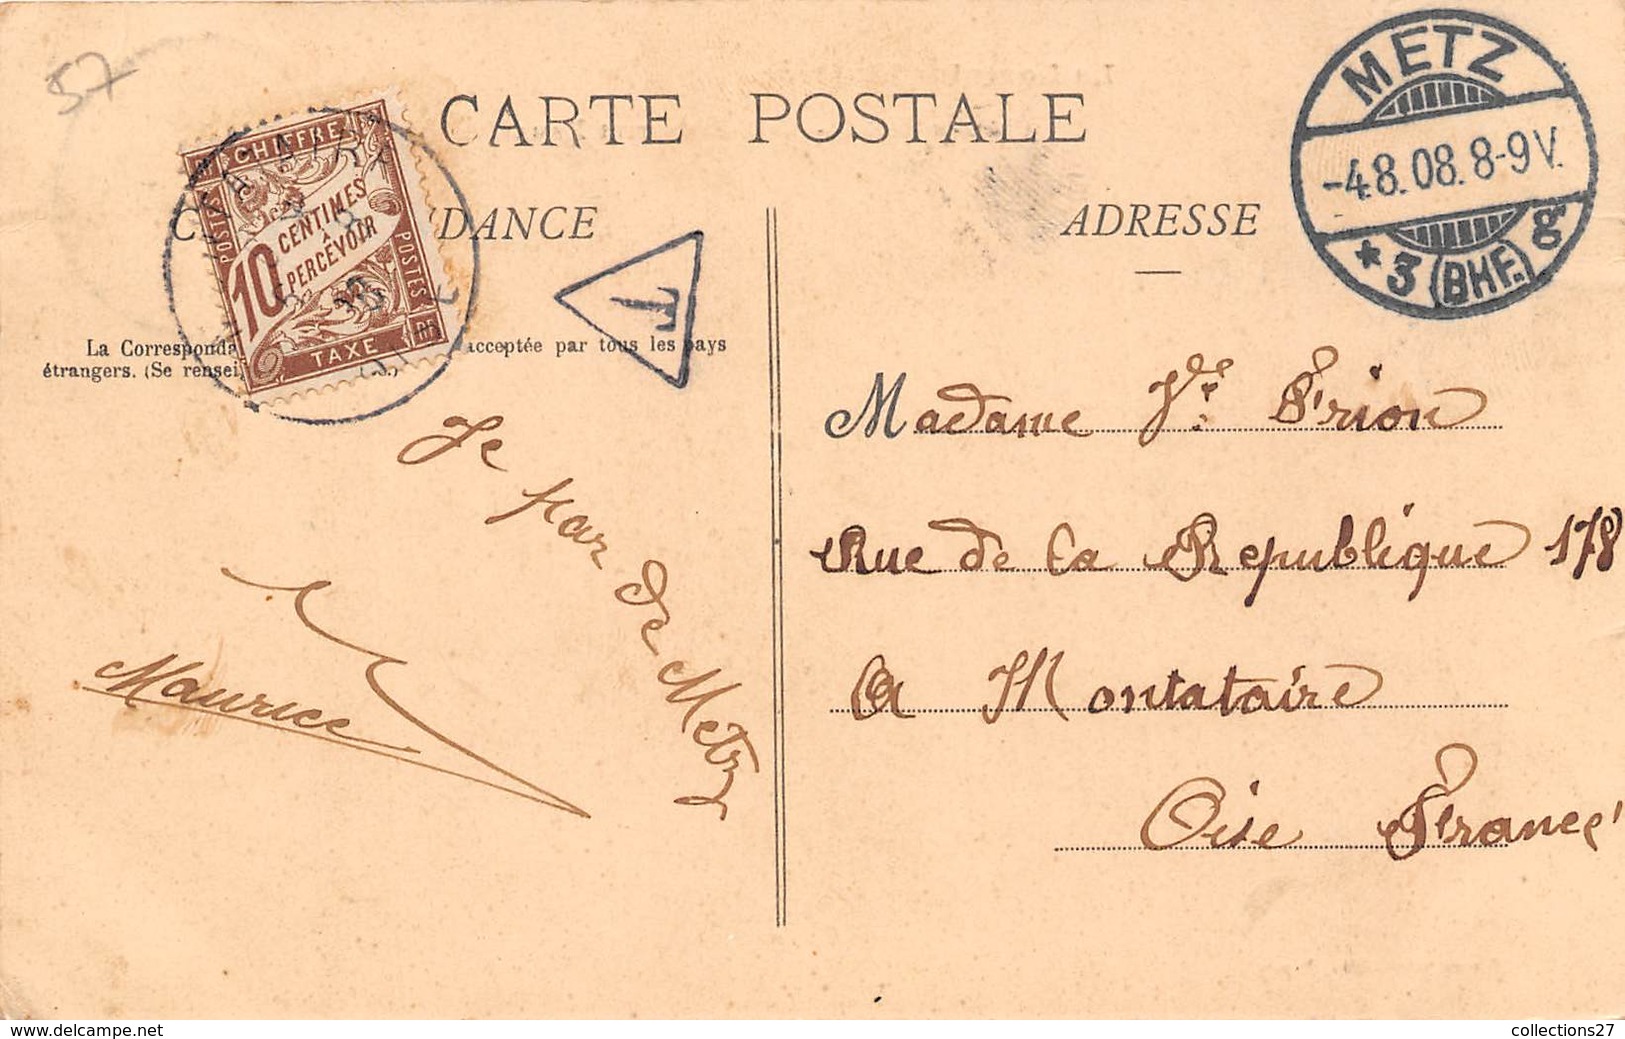 57
CARTE POSTALE
METZ
-4.8.08.8-9V.
* 3 (BHF.) g
CHIFFRE
POSTES
10
CENTIMES
À
PERCEVOIR
POSTES
TAXE
RF
DANCE
ADRESSE
T
La Corresponda acceptée par tous les pays
étrangers. (Se rensei
Je par de Metz
Maurice
Madame Vve Frion
Rue de la Republique 178
A Montataire
Oise France
www.delcampe.net
collections27